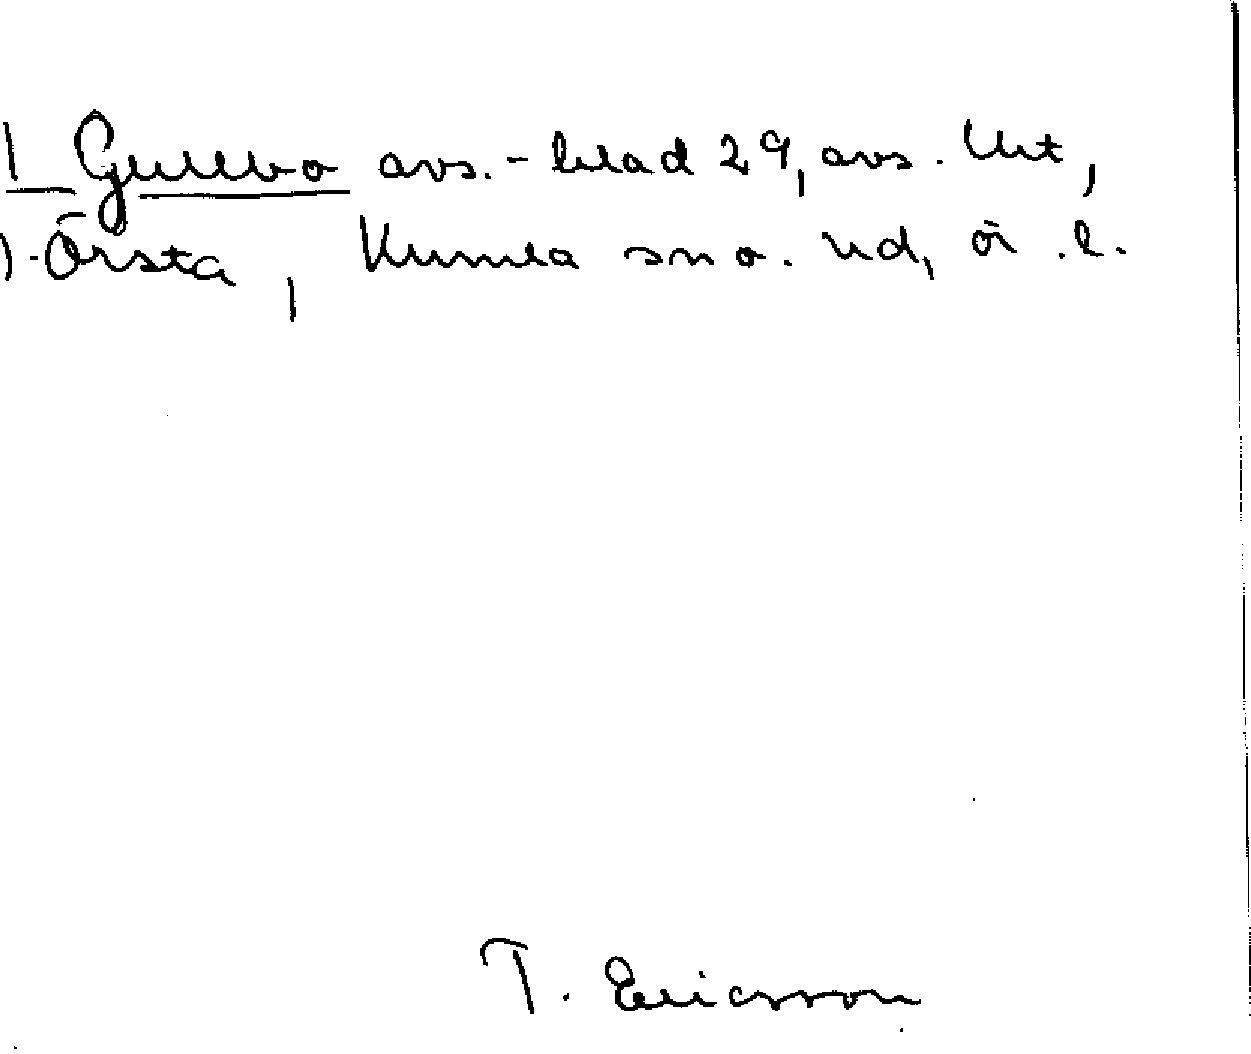 1 Gullbo avs. - blad 29, avs. Urt,
Örsta, Kumla sn o. hd, Ö. l.
T. Ericsson